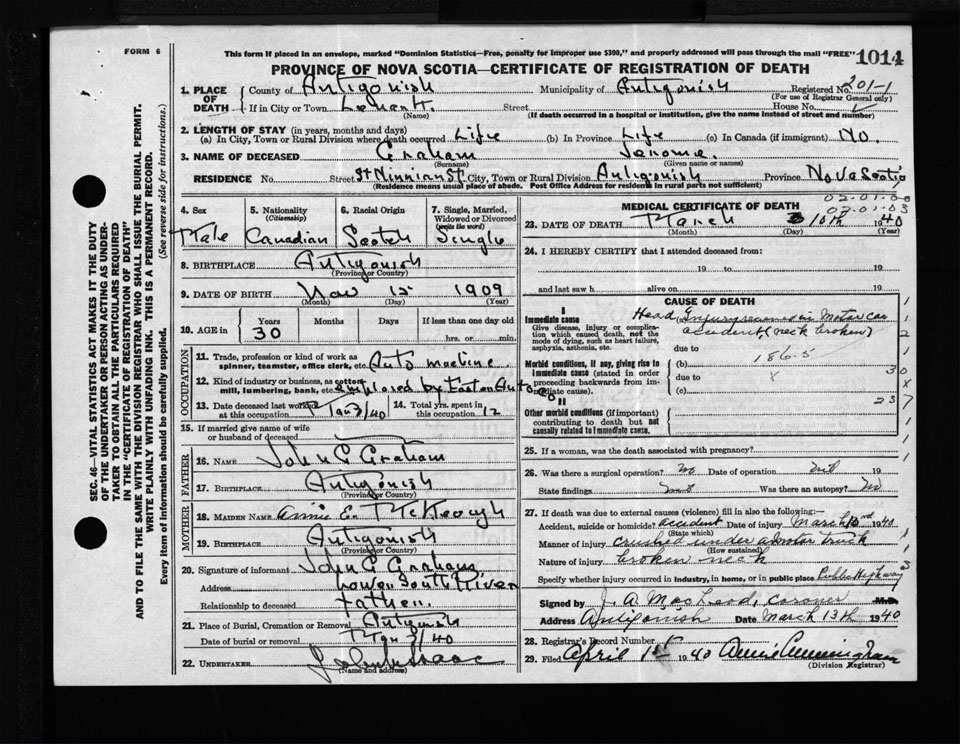 FORM 6
This form if placed in an envelope, marked "Dominion Statistics—Free, penalty for improper use $300," and properly addressed will pass through the mail "FREE"
1014
PROVINCE OF NOVA SCOTIA—CERTIFICATE OF REGISTRATION OF DEATH
SEC. 46—VITAL STATISTICS ACT MAKES IT THE DUTY
OF THE UNDERTAKER OR PERSON ACTING AS UNDER-
TAKER TO OBTAIN ALL THE PARTICULARS REQUIRED
IN THE "CERTIFICATE OF REGISTRATION OF DEATH"
AND TO FILE THE SAME WITH THE DIVISION REGISTRAR WHO SHALL ISSUE THE BURIAL PERMIT.
WRITE PLAINLY WITH UNFADING INK. THIS IS A PERMANENT RECORD.
Every item of information should be carefully supplied. (See reverse side for instructions.)
1. PLACE OF DEATH County of Antigonish Municipality of Antigonish Registered No. 201-1
(For use of Registrar General only)
If in City or Town Street House No.
(Name) (If death occurred in a hospital or institution, give the name instead of street and number)
2. LENGTH OF STAY (in years, months and days)
(a) In City, Town or Rural Division where death occurred Life (b) In Province Life (c) In Canada (if immigrant) No.
3. NAME OF DECEASED Graham Jerome.
(Surname) (Given name or names)
RESIDENCE No. Street St Ninnian St City, Town or Rural Division Antigonish Province Nova Scotia
(Residence means usual place of abode. Post Office Address for residents in rural parts not sufficient)
4. Sex Male
5. Nationality (Citizenship) Canadian
6. Racial Origin Scotch
7. Single, Married, Widowed or Divorced (write the word) Single
8. BIRTHPLACE Antigonish
(Province or Country)
9. DATE OF BIRTH Nov 12 1909
(Month) (Day) (Year)
10. AGE in Years Months Days If less than one day old
30 hrs. or min.
OCCUPATION
11. Trade, profession or kind of work as spinner, teamster, office clerk, etc. Auto
12. Kind of industry or business, as cotton mill, lumbering, bank, etc. employed by Auto
13. Date deceased last worked at this occupation Mar 3/40 14. Total yrs. spent in this occupation 12
15. If married give name of wife or husband of deceased
FATHER
16. NAME John C Graham
17. BIRTHPLACE Antigonish
(Province or Country)
MOTHER
18. MAIDEN NAME Annie E. McKeough
19. BIRTHPLACE Antigonish
(Province or Country)
20. Signature of informant John C Graham
Address Lower South River
Relationship to deceased father.
21. Place of Burial, Cremation or Removal Antigonish
Date of burial or removal Mar 3/40
22. UNDERTAKER
(Name and address)
MEDICAL CERTIFICATE OF DEATH
02-01-00
02-01-03
23. DATE OF DEATH March 10th 1940
(Month) (Day) (Year)
24. I HEREBY CERTIFY that I attended deceased from:
19 to 19
and last saw h alive on 19
CAUSE OF DEATH
I
Immediate cause
Give disease, injury or complication which caused death, not the mode of dying, such as heart failure, asphyxia, asthenia, etc.
(a) Head Injury received in Motor car
accident, (neck broken)
due to
Morbid conditions, if any, giving rise to immediate cause (stated in order proceeding backwards from immediate cause).
(b) 186.5
due to X
(c)
II
Other morbid conditions (if important) contributing to death but not causally related to immediate cause.
1
2
30
X
237
1
25. If a woman, was the death associated with pregnancy?
26. Was there a surgical operation? No Date of operation nil 19
State findings Was there an autopsy? No
27. If death was due to external causes (violence) fill in also the following:
Accident, suicide or homicide? accident Date of injury March 1940
(State which)
Manner of injury crushed under a motor truck
(How sustained)
Nature of injury broken neck
Specify whether injury occurred in industry, in home, or in public place Public Highway
Signed by J. A. MacLeod, coroner M.D.
Address Antigonish Date March 13th 1940
28. Registrar's Record Number 5
29. Filed April 1st 1940 Annie Cunningham
(Division Registrar)